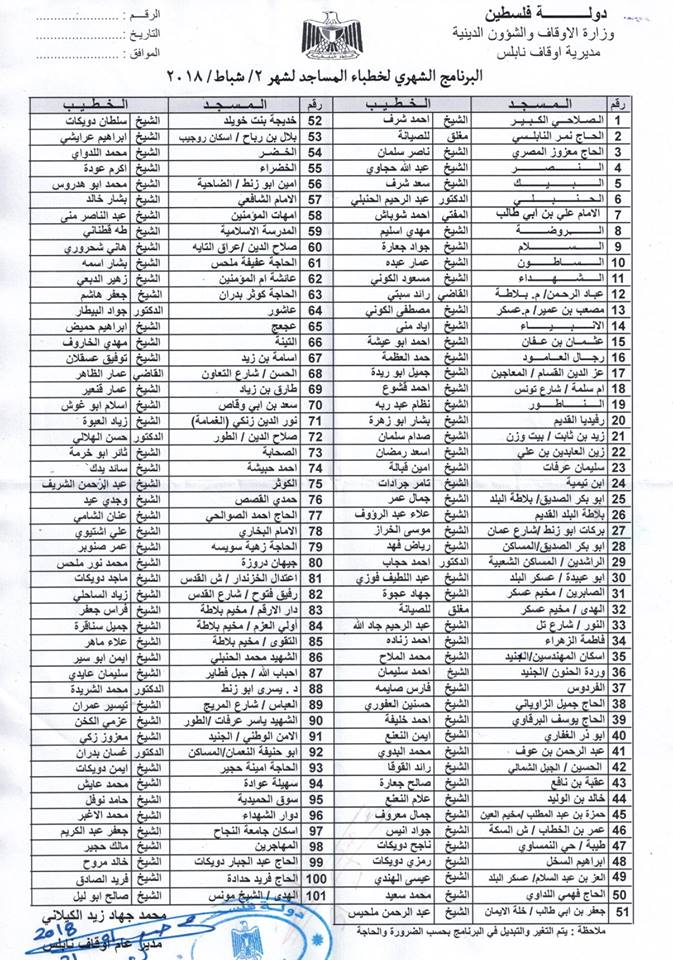 دولــة فلسطين
وزارة الاوقاف والشؤون الدينية
مديرية اوقاف نابلس
الرقم :
التاريخ :
الموافق :
البرنامج الشهري لخطباء المساجد لشهر ٢/ شباط/ ٢٠١٨
رقم المسجد الخطيب
1 الصلاحي الكبير الشيخ احمد شرف
2 الحاج نمر النابلسي مغلق للصيانة
3 الحاج معزوز المصري الشيخ ناصر سلمان
4 النصر الشيخ عبد الله حجاوي
5 البيك الشيخ سعد شرف
6 الحنبلي الدكتور عبد الرحيم الحنبلي
7 الامام علي بن ابي طالب المفتي احمد شوباش
8 الروضة الشيخ مهدي اسليم
9 السلام الشيخ جواد جعارة
10 الساطون الشيخ عمار عبده
11 الشهداء الشيخ مسعود الكوني
12 عباد الرحمن/ م. بلاطة القاضي رائد سبتي
13 مصعب بن عمير/ م.عسكر الشيخ مصطفى الكوني
14 الانبياء الشيخ اياد منى
15 عثمان بن عفان الشيخ احمد ابو عيشة
16 رجال العامود الشيخ حمد العظمة
17 عز الدين القسام / المعاجين الشيخ جميل ابو ريدة
18 ام سلمة / شارع تونس الشيخ احمد قشوع
19 الناطور الشيخ نظام عبد ربه
20 رفيديا القديم الشيخ بشار ابو زهرة
21 زيد بن ثابت / بيت وزن الشيخ صدام سلمان
22 زين العابدين بن علي الشيخ اسعد رمضان
23 سليمان عرفات الشيخ امين قبالة
24 ابن تيمية الشيخ تامر جرادات
25 ابو بكر الصديق/ بلاطة البلد الشيخ جمال عمر
26 بلاطة البلد القديم الشيخ علاء عبد الرؤوف
27 بركات ابو زنط /شارع عمان الشيخ موسى الخراز
28 ابو بكر الصديق/المساكن الشيخ رياض فهد
29 الراشدين / المساكن الشعبية الدكتور احمد حجاب
30 ابو عبيدة / عسكر البلد الشيخ عبد اللطيف فوزي
31 الصابرين / مخيم عسكر الشيخ جهاد عجوة
32 الهدى / مخيم عسكر مغلق للصيانة
33 النور / شارع تل الشيخ عبد الرحيم جاد الله
34 فاطمة الزهراء الشيخ احمد زناده
35 اسكان المهندسين/الجنيد الشيخ محمد الملاح
36 وردة الحنون /الجنيد الشيخ احمد سليمان
37 الفردوس الشيخ فارس صايمه
38 الحاج جميل الزاوياني الشيخ حسنين العفوري
39 الحاج يوسف البرقاوي الشيخ احمد خليفة
40 ابو ذر الغفاري الشيخ ايمن النعنع
41 عبد الرحمن بن عوف الشيخ محمد البدوي
42 الحسين / الجبل الشمالي الشيخ رائد القوقا
43 عقبة بن نافع الشيخ صالح جعارة
44 خالد بن الوليد الشيخ علام النعنع
45 حمزة بن عبد المطلب /مخيم العين الشيخ جمال معروف
46 عمر بن الخطاب / ش السكة الشيخ جواد انيس
47 طيبة / حي النمساوي الشيخ ناجح دويكات
48 ابراهيم السخل الشيخ رمزي دويكات
49 العز بن عبد السلام/ عسكر البلد الشيخ عيسى الهندي
50 الحاج فهمي اللداوي الشيخ محمد سعيد
51 جعفر بن ابي طالب / خلة الايمان الشيخ عبد الرحمن ملحيس
رقم المسجد الخطيب
52 خديجة بنت خويلد الشيخ سلطان دويكات
53 بلال بن رباح / اسكان روجيب الشيخ ابراهيم عرايشي
54 الخضر الشيخ محمد اللدواي
55 الخضراء الشيخ اكرم عودة
56 امين ابو زنط / الضاحية الشيخ محمد ابو هدروس
57 الامام الشافعي الشيخ بشار خالد
58 امهات المؤمنين الشيخ عبد الناصر منى
59 المدرسة الاسلامية الشيخ طه قطناني
60 صلاح الدين /عراق التايه الشيخ هاني شحروري
61 الحاجة عفيفة ملحس الشيخ بشار اسمه
62 عائشة ام المؤمنين الشيخ زهير الدبعي
63 الحاجة كوثر بدران الشيخ جعفر هاشم
64 عاشور الدكتور جواد البيطار
65 عجعج الشيخ ابراهيم حميض
66 التينة الشيخ مهدي الخاروف
67 اسامة بن زيد الشيخ توفيق عسقلان
68 الحسن / شارع التعاون القاضي عمار الظاهر
69 طارق بن زياد الشيخ عمار قنعير
70 سعد بن ابي وقاص الشيخ اسلام ابو غوش
71 نور الدين زنكي (الغمامة) الشيخ زياد العبوة
72 صلاح الدين / الطور الدكتور حسن الهلالي
73 الصحابة الشيخ ثائر ابو خرمة
74 احمد حبيشة الشيخ سائد يدك
75 الكوثر الشيخ عبد الرحمن الشريف
76 حمدي القصص الشيخ وجدي عيد
77 الحاج احمد الصوالحي الشيخ عنان الشامي
78 الامام البخاري الشيخ علي اشتيوي
79 الحاجة زهية سويسه الشيخ عمر صنوبر
80 جيهان دروزة الشيخ محمد نور ملحس
81 اعتدال الخزندار / ش القدس الشيخ ماجد دويكات
82 رفيق فتوح / شارع القدس الشيخ زياد الساحلي
83 دار الارقم / مخيم بلاطة الشيخ فراس جعفر
84 أولي العزم / مخيم بلاطة الشيخ جميل سناقرة
85 التقوى / مخيم بلاطة الشيخ علاء ماهر
86 الشهيد محمد الحنبلي الشيخ ايمن ابو سير
87 احباب الله / جبل فطاير الشيخ سليمان عايدي
88 د . يسرى ابو زنط الدكتور محمد الشريدة
89 العباس / شارع المريج الشيخ تيسير عمران
90 الشهيد ياسر عرفات /الطور الشيخ عزمي الكخن
91 الامن الوطني / الجنيد الشيخ معزوز زكي
92 ابو حنيفة النعمان/المساكن الدكتور غسان بدران
93 الحاجة امينة حجير الشيخ ايمن دويكات
94 سهيلة عوادة الشيخ محمد عايش
95 سوق الحميدية الشيخ حامد نوفل
96 دوار الشهداء الشيخ محمد الاغبر
97 اسكان جامعة النجاح الشيخ جعفر عبد الكريم
98 المهاجرين الشيخ مالك حجير
99 الحاج عبد الجبار دويكات الشيخ خالد مروح
100 الحاج فريد حدادة الشيخ فريد الصادق
101 الهدى / الشيخ مونس الشيخ صالح ابو ليل
ملاحظة : يتم التغير والتبديل في البرنامج بحسب الضرورة والحاجة
محمد جهاد زيد الكيلاني
مدير عام اوقاف نابلس
2018
دولة فلسطين